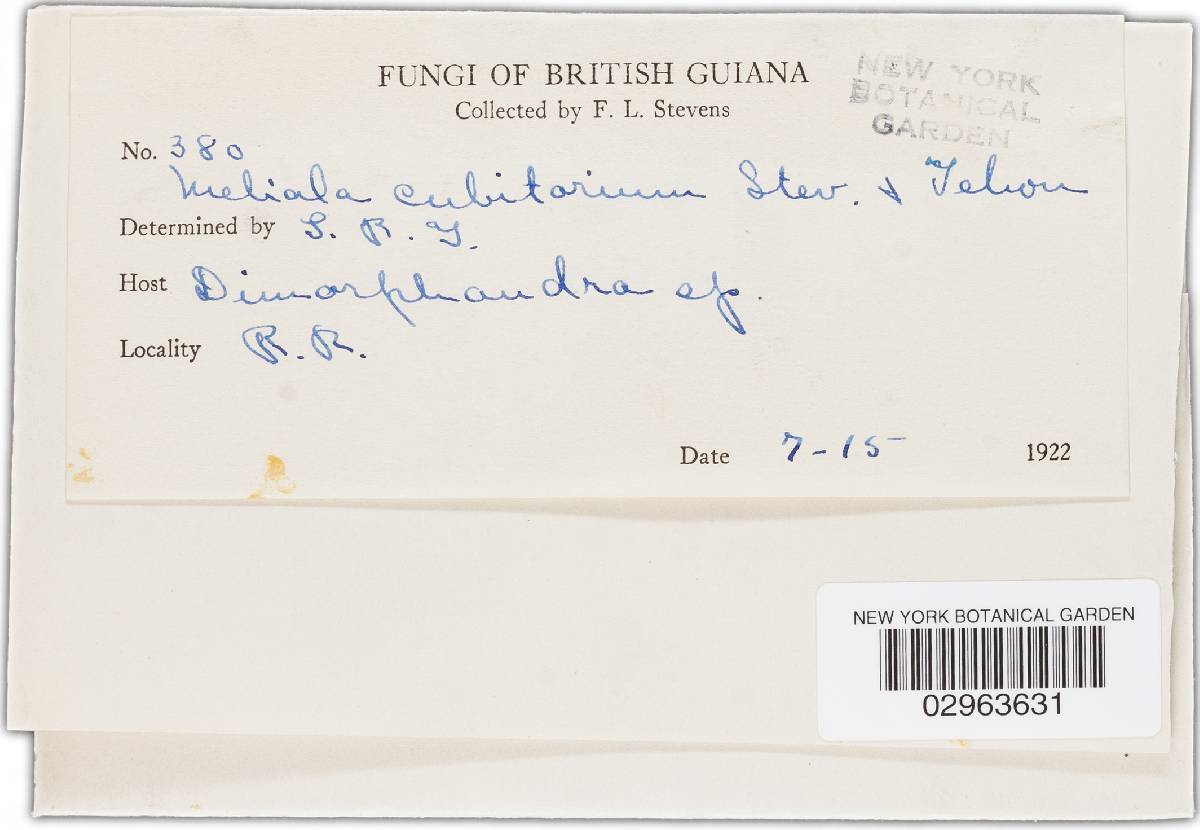 FUNGI OF BRITISH GUIANA
Collected by F. L. Stevens
NEW YORK
BOTANICAL
GARDEN
No. 380
Meliola cubitorium Stev. & Tehon
Determined by L. R. T.
Host Dimorphandra sp.
Locality R. R.
Date 7-15 1922
NEW YORK BOTANICAL GARDEN
02963631